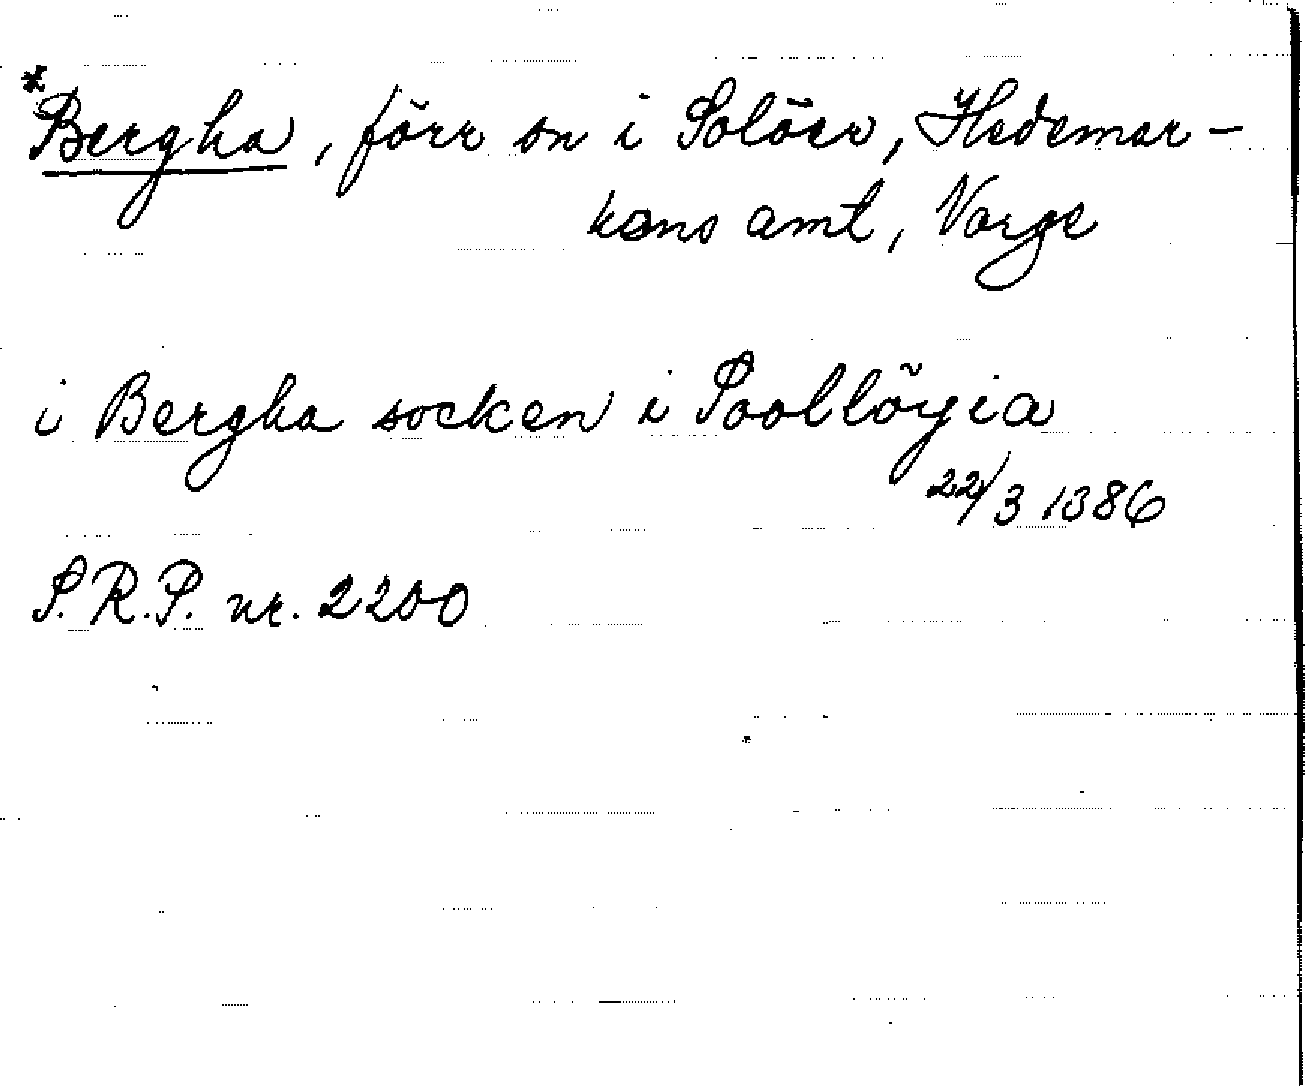 *Bergha, förr sn i Solöer, Hedemar-
kens amt, Norge
i Bergha socken i Soolløyia
22/3 1386
S.R.P. nr. 2200